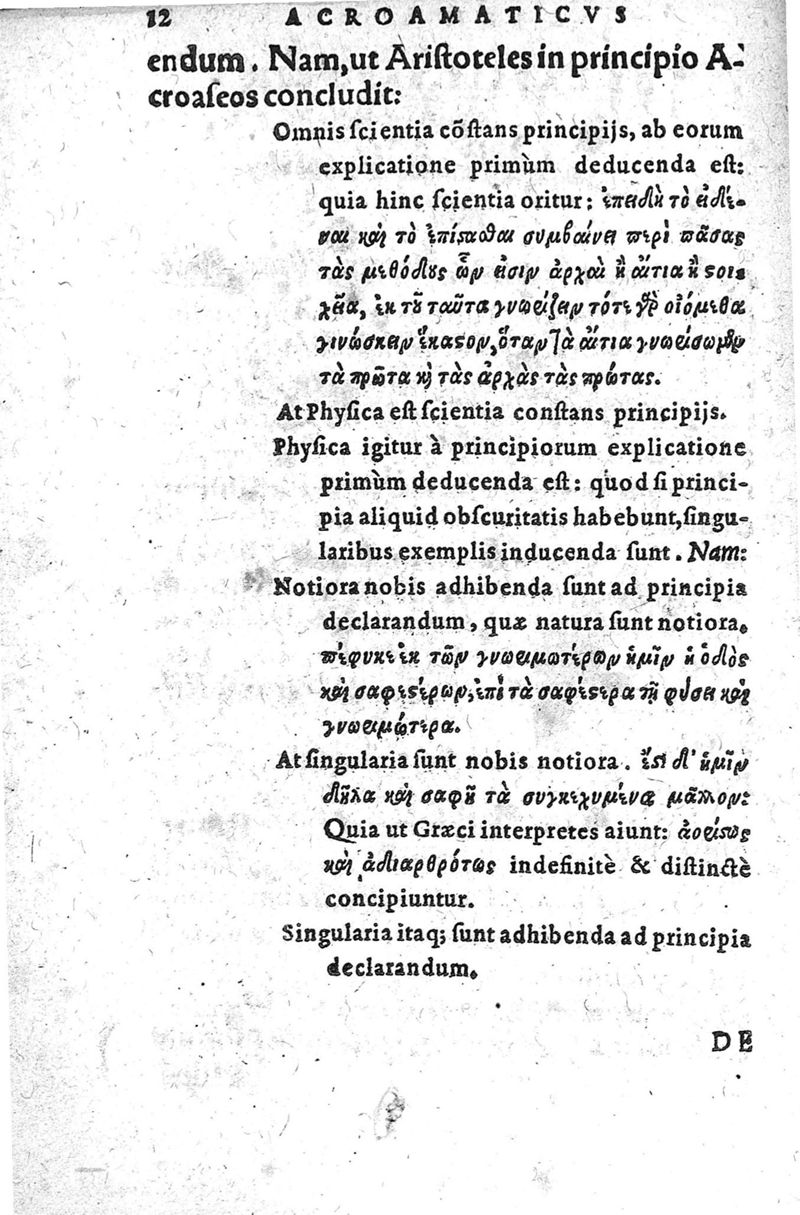 12 ACROAMATICVS
endum. Nam, ut Aristoteles in principio A-
croaseos concludit:
Omnis scientia cõstans principijs, ab eorum
explicatione primùm deducenda est:
quia hinc scientia oritur: ἐπειδὴ τὸ εἰδέ-
ναι καὶ τὸ ἐπίστασθαι συμβαίνει περὶ πᾶσας
τὰς μεθόδους ὧν εἰσιν ἀρχαὶ ἢ αἴτια ἢ στοι-
χεῖα, ἐκ τοῦ ταῦτα γνωρίζειν τότε γὰρ οἰόμεθα
γινώσκειν ἕκαστον, ὅταν τὰ αἴτια γνωρίσωμεν
τὰ πρῶτα καὶ τὰς ἀρχὰς τὰς πρώτας.
At Physica est scientia constans principijs.
Physica igitur à principiorum explicatione
primùm deducenda est: quod si princi-
pia aliquid obscuritatis habebunt, singu-
laribus exemplis inducenda sunt. Nam:
Notiora nobis adhibenda sunt ad principia
declarandum, quæ natura sunt notiora.
πέφυκε ἐκ τῶν γνωριμωτέρων ἡμῖν ἡ ὁδὸς
καὶ σαφεστέρων, ἐπὶ τὰ σαφέστερα τῇ φύσει καὶ
γνωριμώτερα.
At singularia sunt nobis notiora. ἔστι δ' ἡμῖν
δῆλα καὶ σαφῆ τὰ συγκεχυμένα μᾶλλον:
Quia ut Græci interpretes aiunt: ἀορίστως
καὶ ἀδιαρθρότως indefinitè & distinctè
concipiuntur.
Singularia itaq; sunt adhibenda ad principia
declarandum.
DE